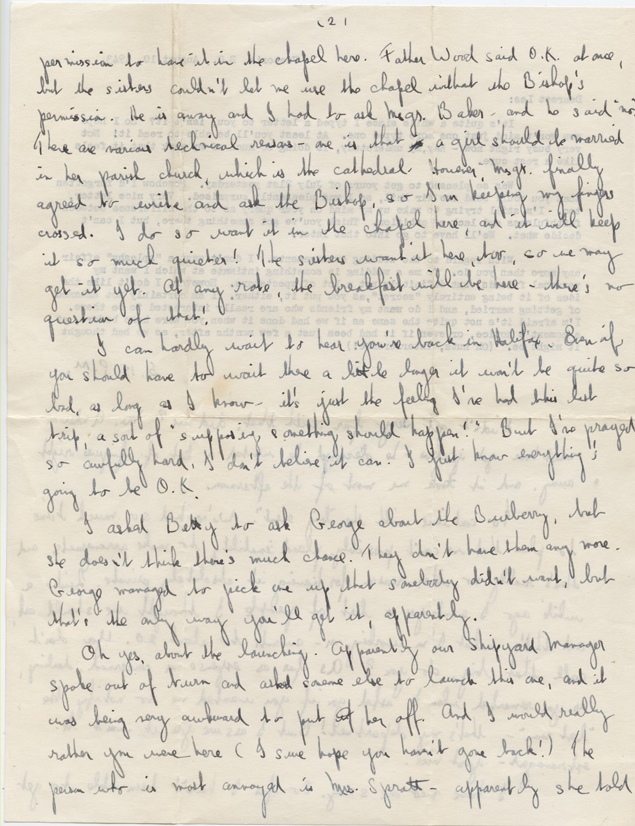 (2)
permission to have it in the chapel here. Father Wood said O.K. at once,
but the sisters couldn't let me use the chapel without the Bishop's
permission. He is away and I had to ask Msgr. Baker - and he said "no".
There are various technical reasons - one is that a girl should be married
in her parish church, which is the cathedral. However, Msgr. finally
agreed to write and ask the Bishop, so I'm keeping my fingers
crossed. I do so want it in the chapel here, and it will keep
it so much quieter! The sisters want it here, too, so we may
get it yet. At any rate, the breakfast will be here - there's no
question of that!
I can hardly wait to hear you're back in Halifax. Even if
you should have to wait there a little longer it won't be quite so
bad, as long as I know - it's just the feeling I've had this last
trip, a sort of "supposing something should happen!" But I've prayed
so awfully hard, I don't believe it can. I just know everything's
going to be O.K.
I asked Betty to ask George about the Burberry, but
she doesn't think there's much chance. They don't have them any more.
George managed to pick one up that somebody didn't want, but
that's the only way you'll get it, apparently.
Oh yes, about the launching. Apparently our Shipyard Manager
spoke out of turn and asked someone else to launch this one, and it
was being very awkward to put her off. And I would really
rather you were here (I sure hope you haven't gone back!) The
person who is most annoyed is Mrs. Spratt - apparently she told